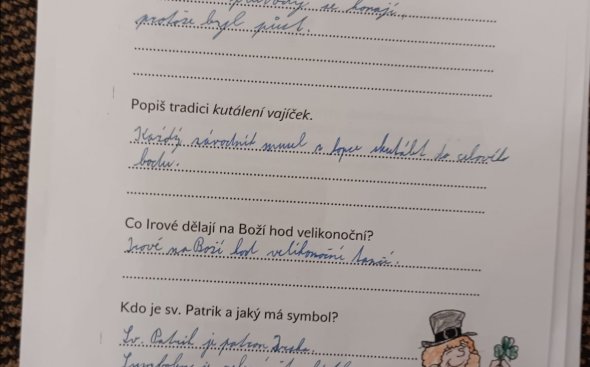 průvody se konají,
protože byl půst.
Popiš tradici kutálení vajíček.
Každý závodník musel z kopce skutálet do cílového
bodu.
Co Irové dělají na Boží hod velikonoční?
Irové na Boží hod velikonoční tančí.
Kdo je sv. Patrik a jaký má symbol?
Sv. Patrik je patron Irska.
Symbolem je